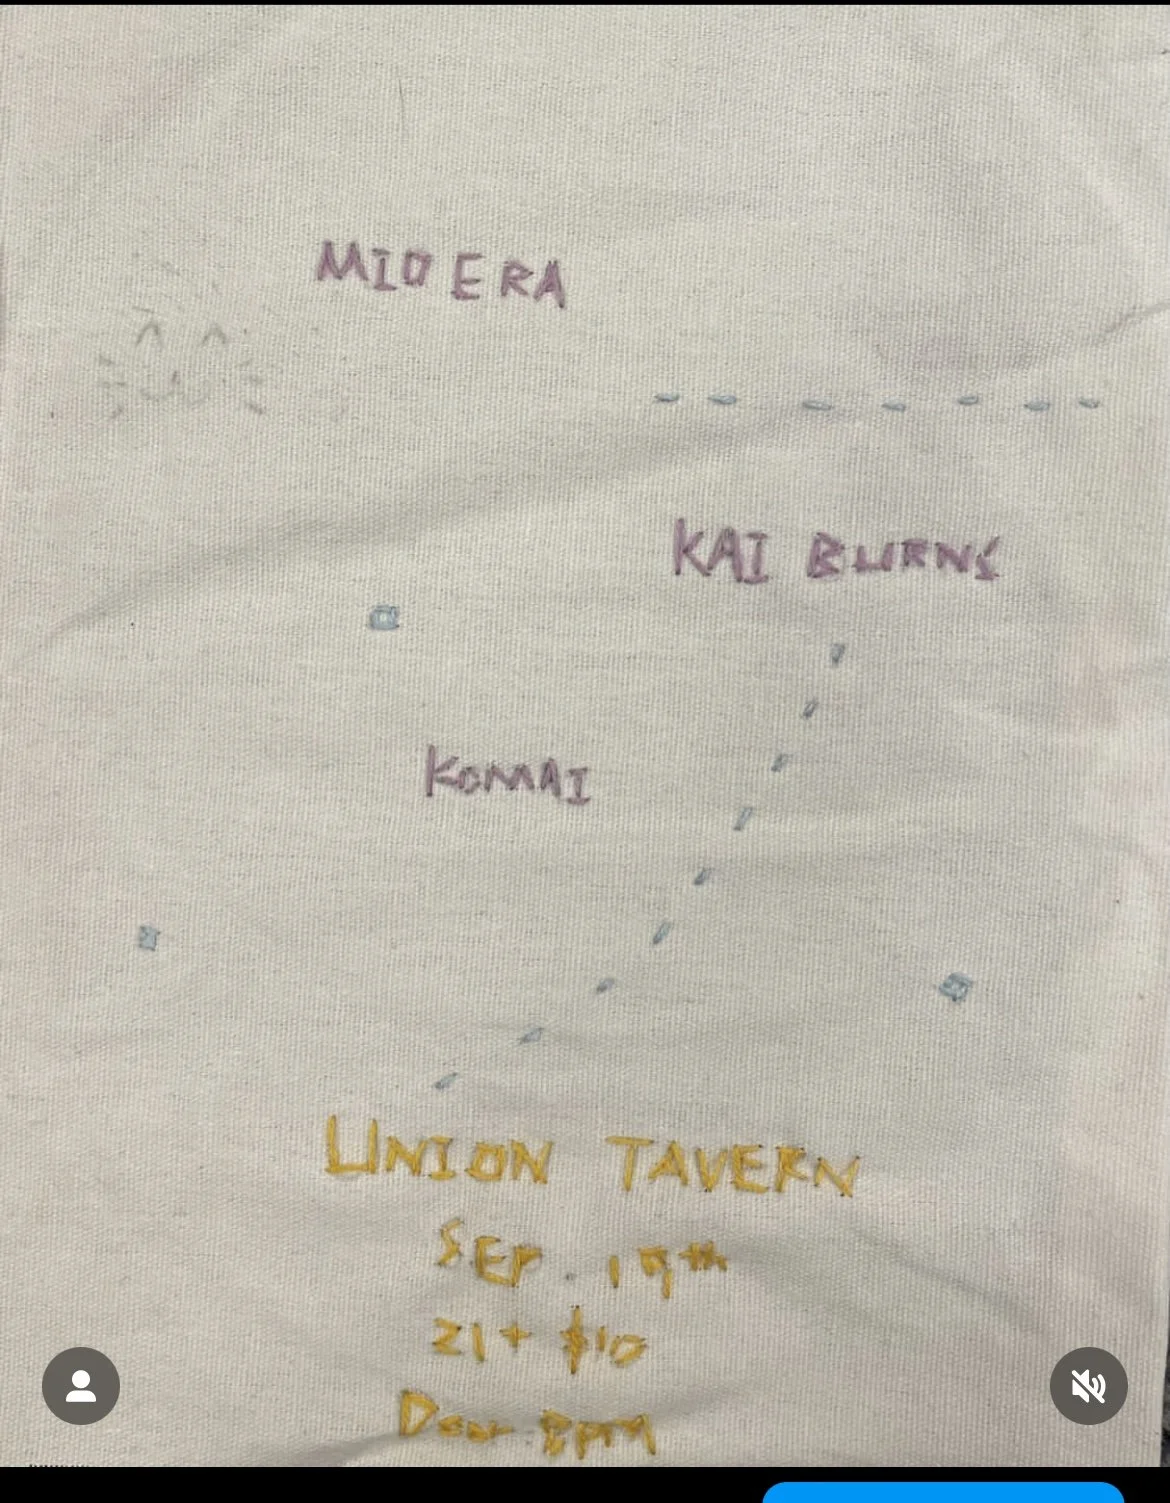 MID ERA
KAI BURNS
KOMAI
UNION TAVERN
SEP. 19th
21+ $10
Door 8pm